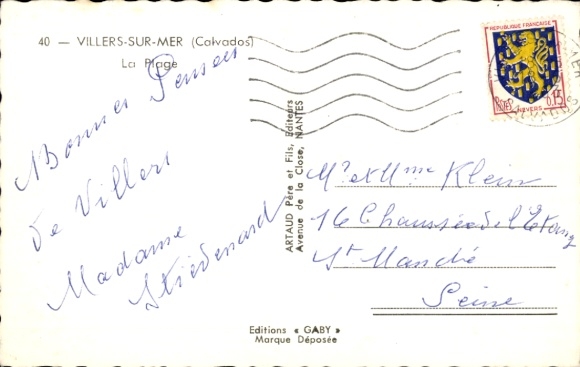 40 — VILLERS-SUR-MER (Calvados)
La Plage
Bonnes Pensées
de Villers
Madame
ARTAUD Père et Fils, Editeurs
Avenue de la Close, NANTES
REPUBLIQUE FRANÇAISE
POSTES
0,15
NEVERS
Mr et Mme Klein
16 Chaussée de l'Etang
St Mandé
Seine
Editions « GABY »
Marque Déposée